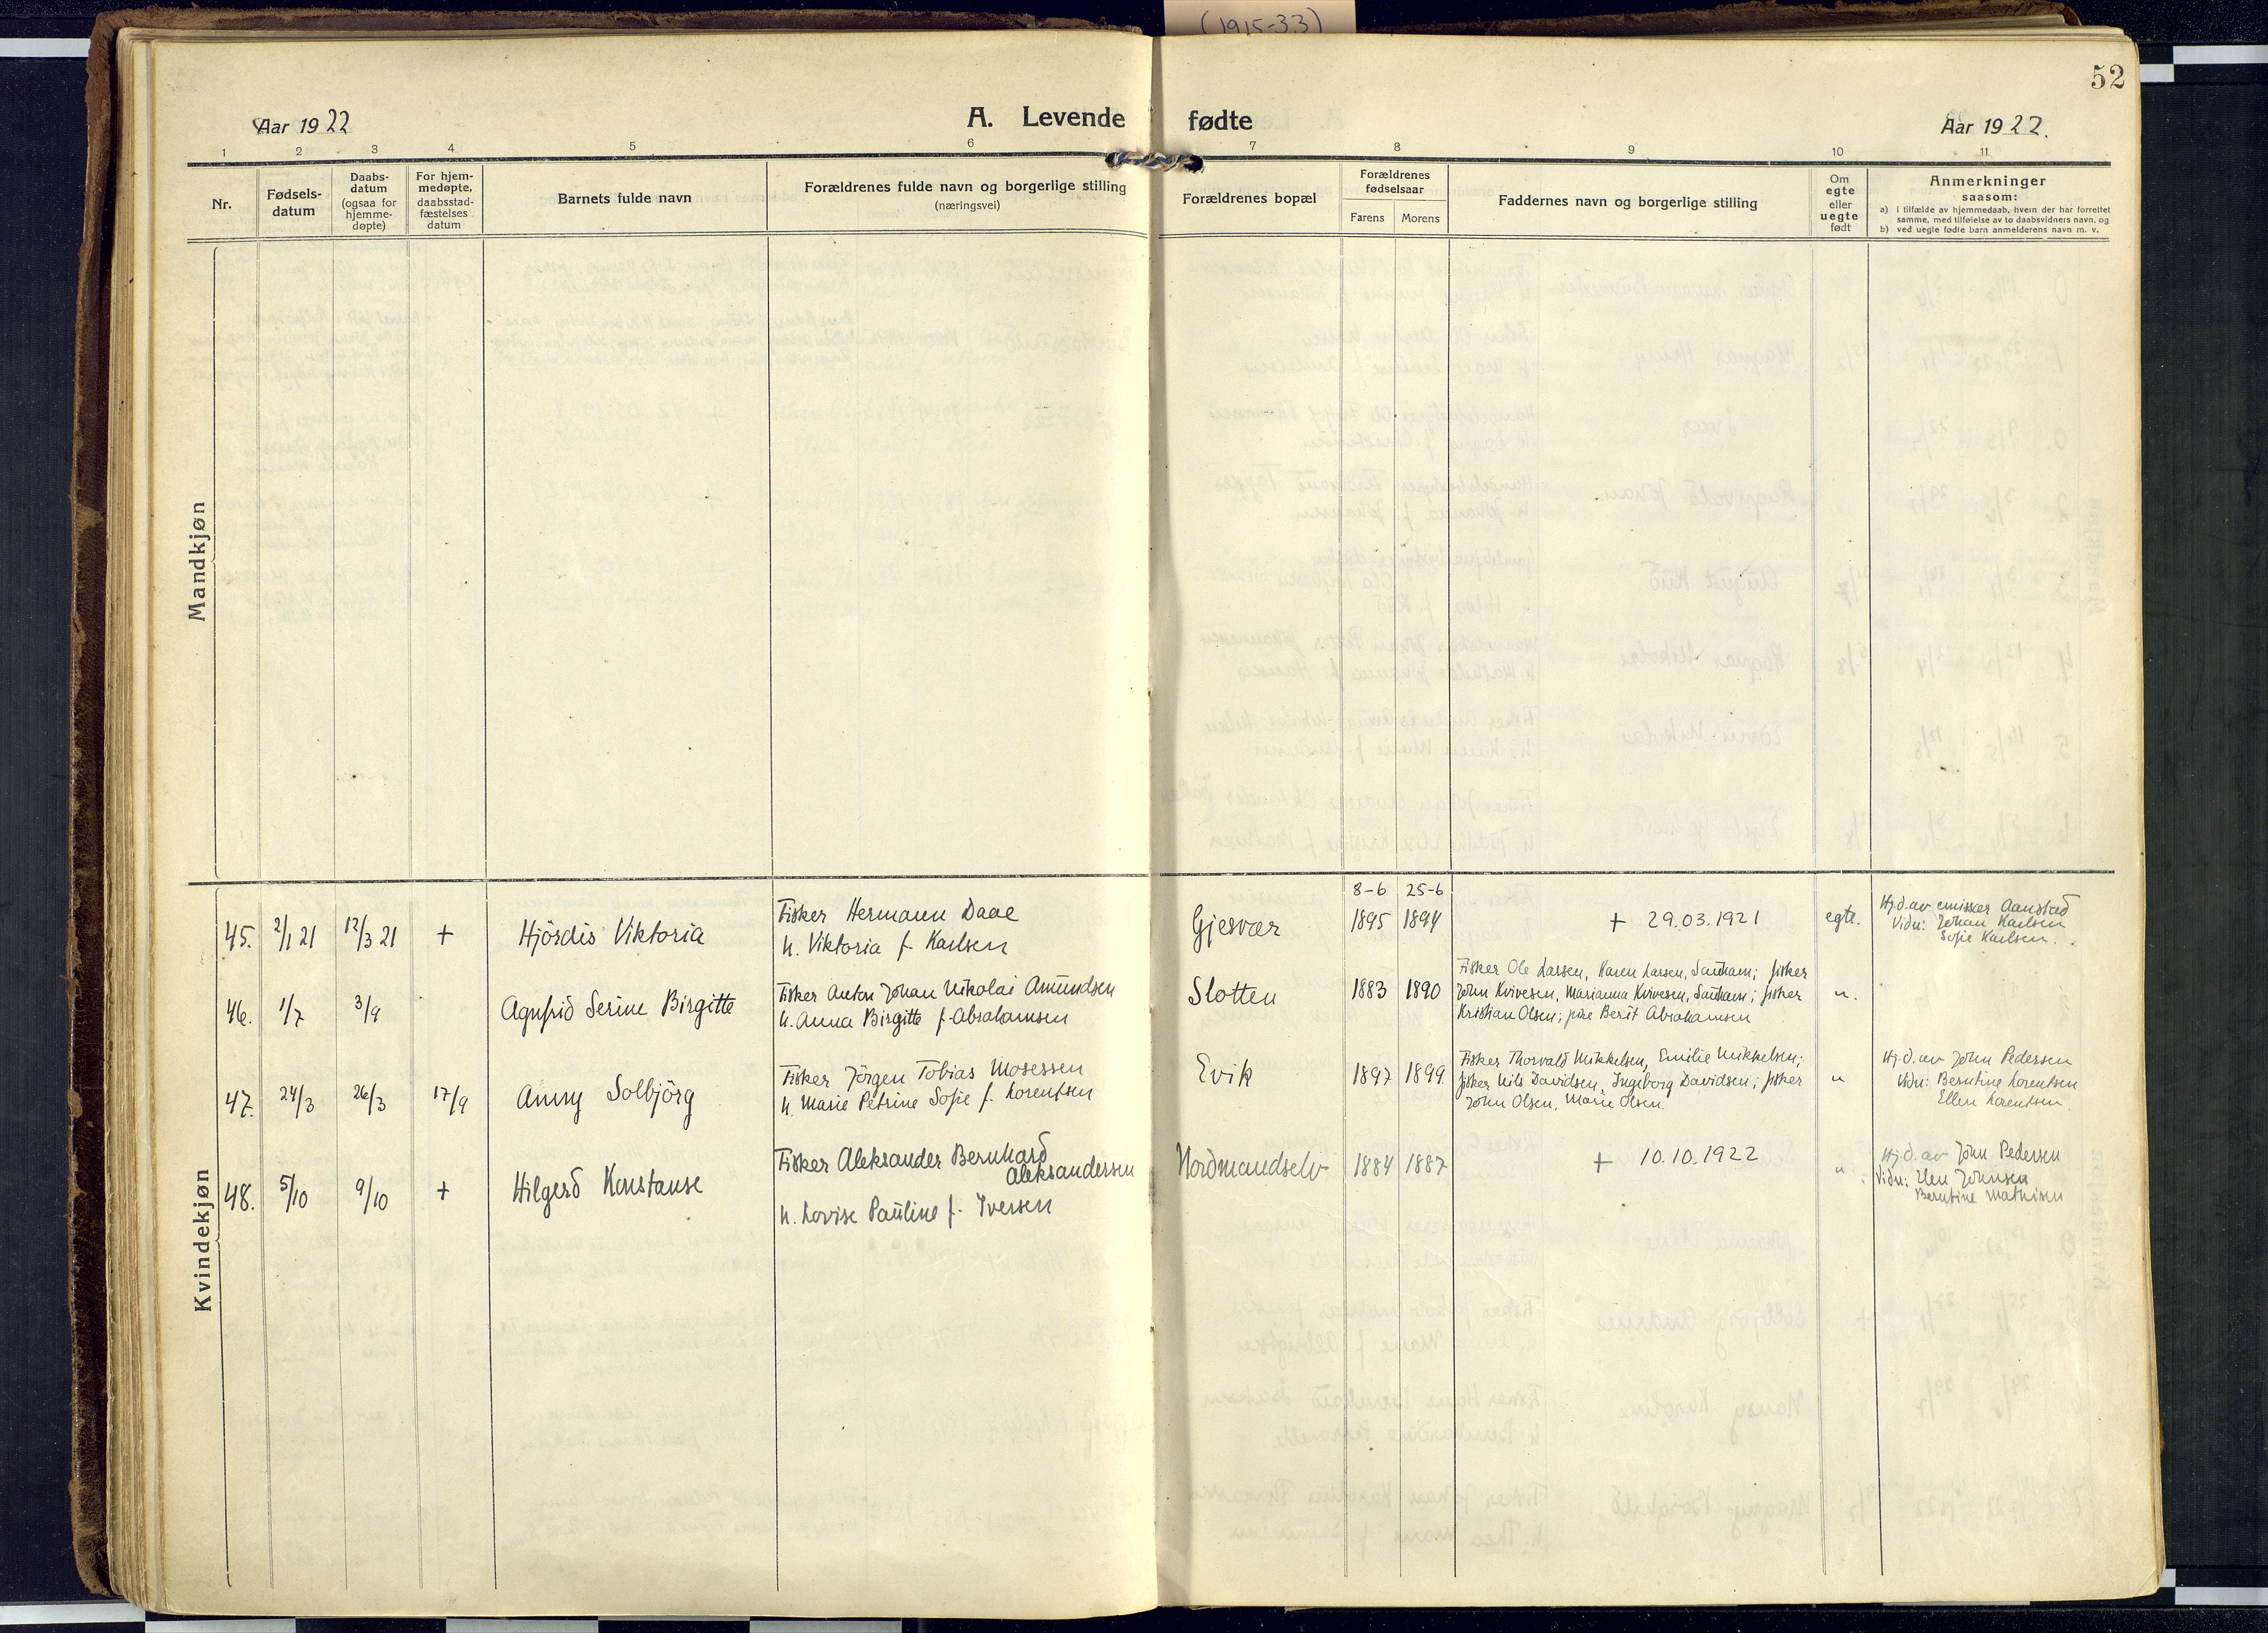 (1915-33)
52
Aar 1922
A. Levende fødte
Aar 1922.
1 2 3 4 5 6 7 8 9 10 11
Nr.
Fødsels-
datum
Daabs-
datum
(ogsaa for
hjemme-
døpte)
For hjem-
medøpte,
daabsstad-
fæstelses
datum
Barnets fulde navn
Forældrenes fulde navn og borgerlige stilling
(næringsvei)
Forældrenes bopæl
Forældrenes
fødselsaar
Farens Morens
Faddernes navn og borgerlige stilling
Om
egte
eller
uegte
født
Anmerkninger
saasom:
a) i tilfælde av hjemmedaab, hvem der har forrettet
samme, med tilføielse av to daabsvidners navn, og
b) ved uegte fødte barn anmelderens navn m. v.
Mandkjøn
Kvindekjøn
45. 2/1 21 12/3 21 + Hjördis Viktoria
Fisker Hermann Daae
h. Viktoria f. Karlsen
Gjesvær
8-6 25-6
1895 1894
+ 29.03.1921
egte.
Hj.d. av emissær Aanstad
Vidn: Johan Karlsen
Sofie Karlsen.
46. 1/7 3/9 Agnfrid Serine Birgitte
Fisker Anton Johan Nikolai Amundsen
h. Anna Birgitte f. Abrahamsen
Slotten
1883 1890
Fisker Ole Larsen, Karen Larsen, Sauham; fisker
John Kvivesen, Marianna Kvivesen, Sauham; fisker
Kristian Olsen; pike Berit Abrahamsen
"
47. 24/3 26/3 17/9 Anny Solbjörg
Fisker Jörgen Tobias Mosessen
h. Marie Petrine Sofie f. Lorentsen
Evik
1897 1899
Fisker Thorvald Mikkelsen, Emilie Mikkelsen;
fisker Nils Davidsen, Ingeborg Davidsen; fisker
John Olsen, Marie Olsen.
"
Hj.d. av John Pedersen
Vidn: Berntine Lorentsen
Ellen Lorentsen
48. 5/10 9/10 + Hilgerd Konstanse
Fisker Aleksander Bernhard
Aleksandersen
h. Lovise Pauline f. Iversen
Nordmandselv
1884 1887
+ 10.10.1922
"
Hj.d. av John Pedersen
Vidn: Elen Johnsen
Berntine Mathisen